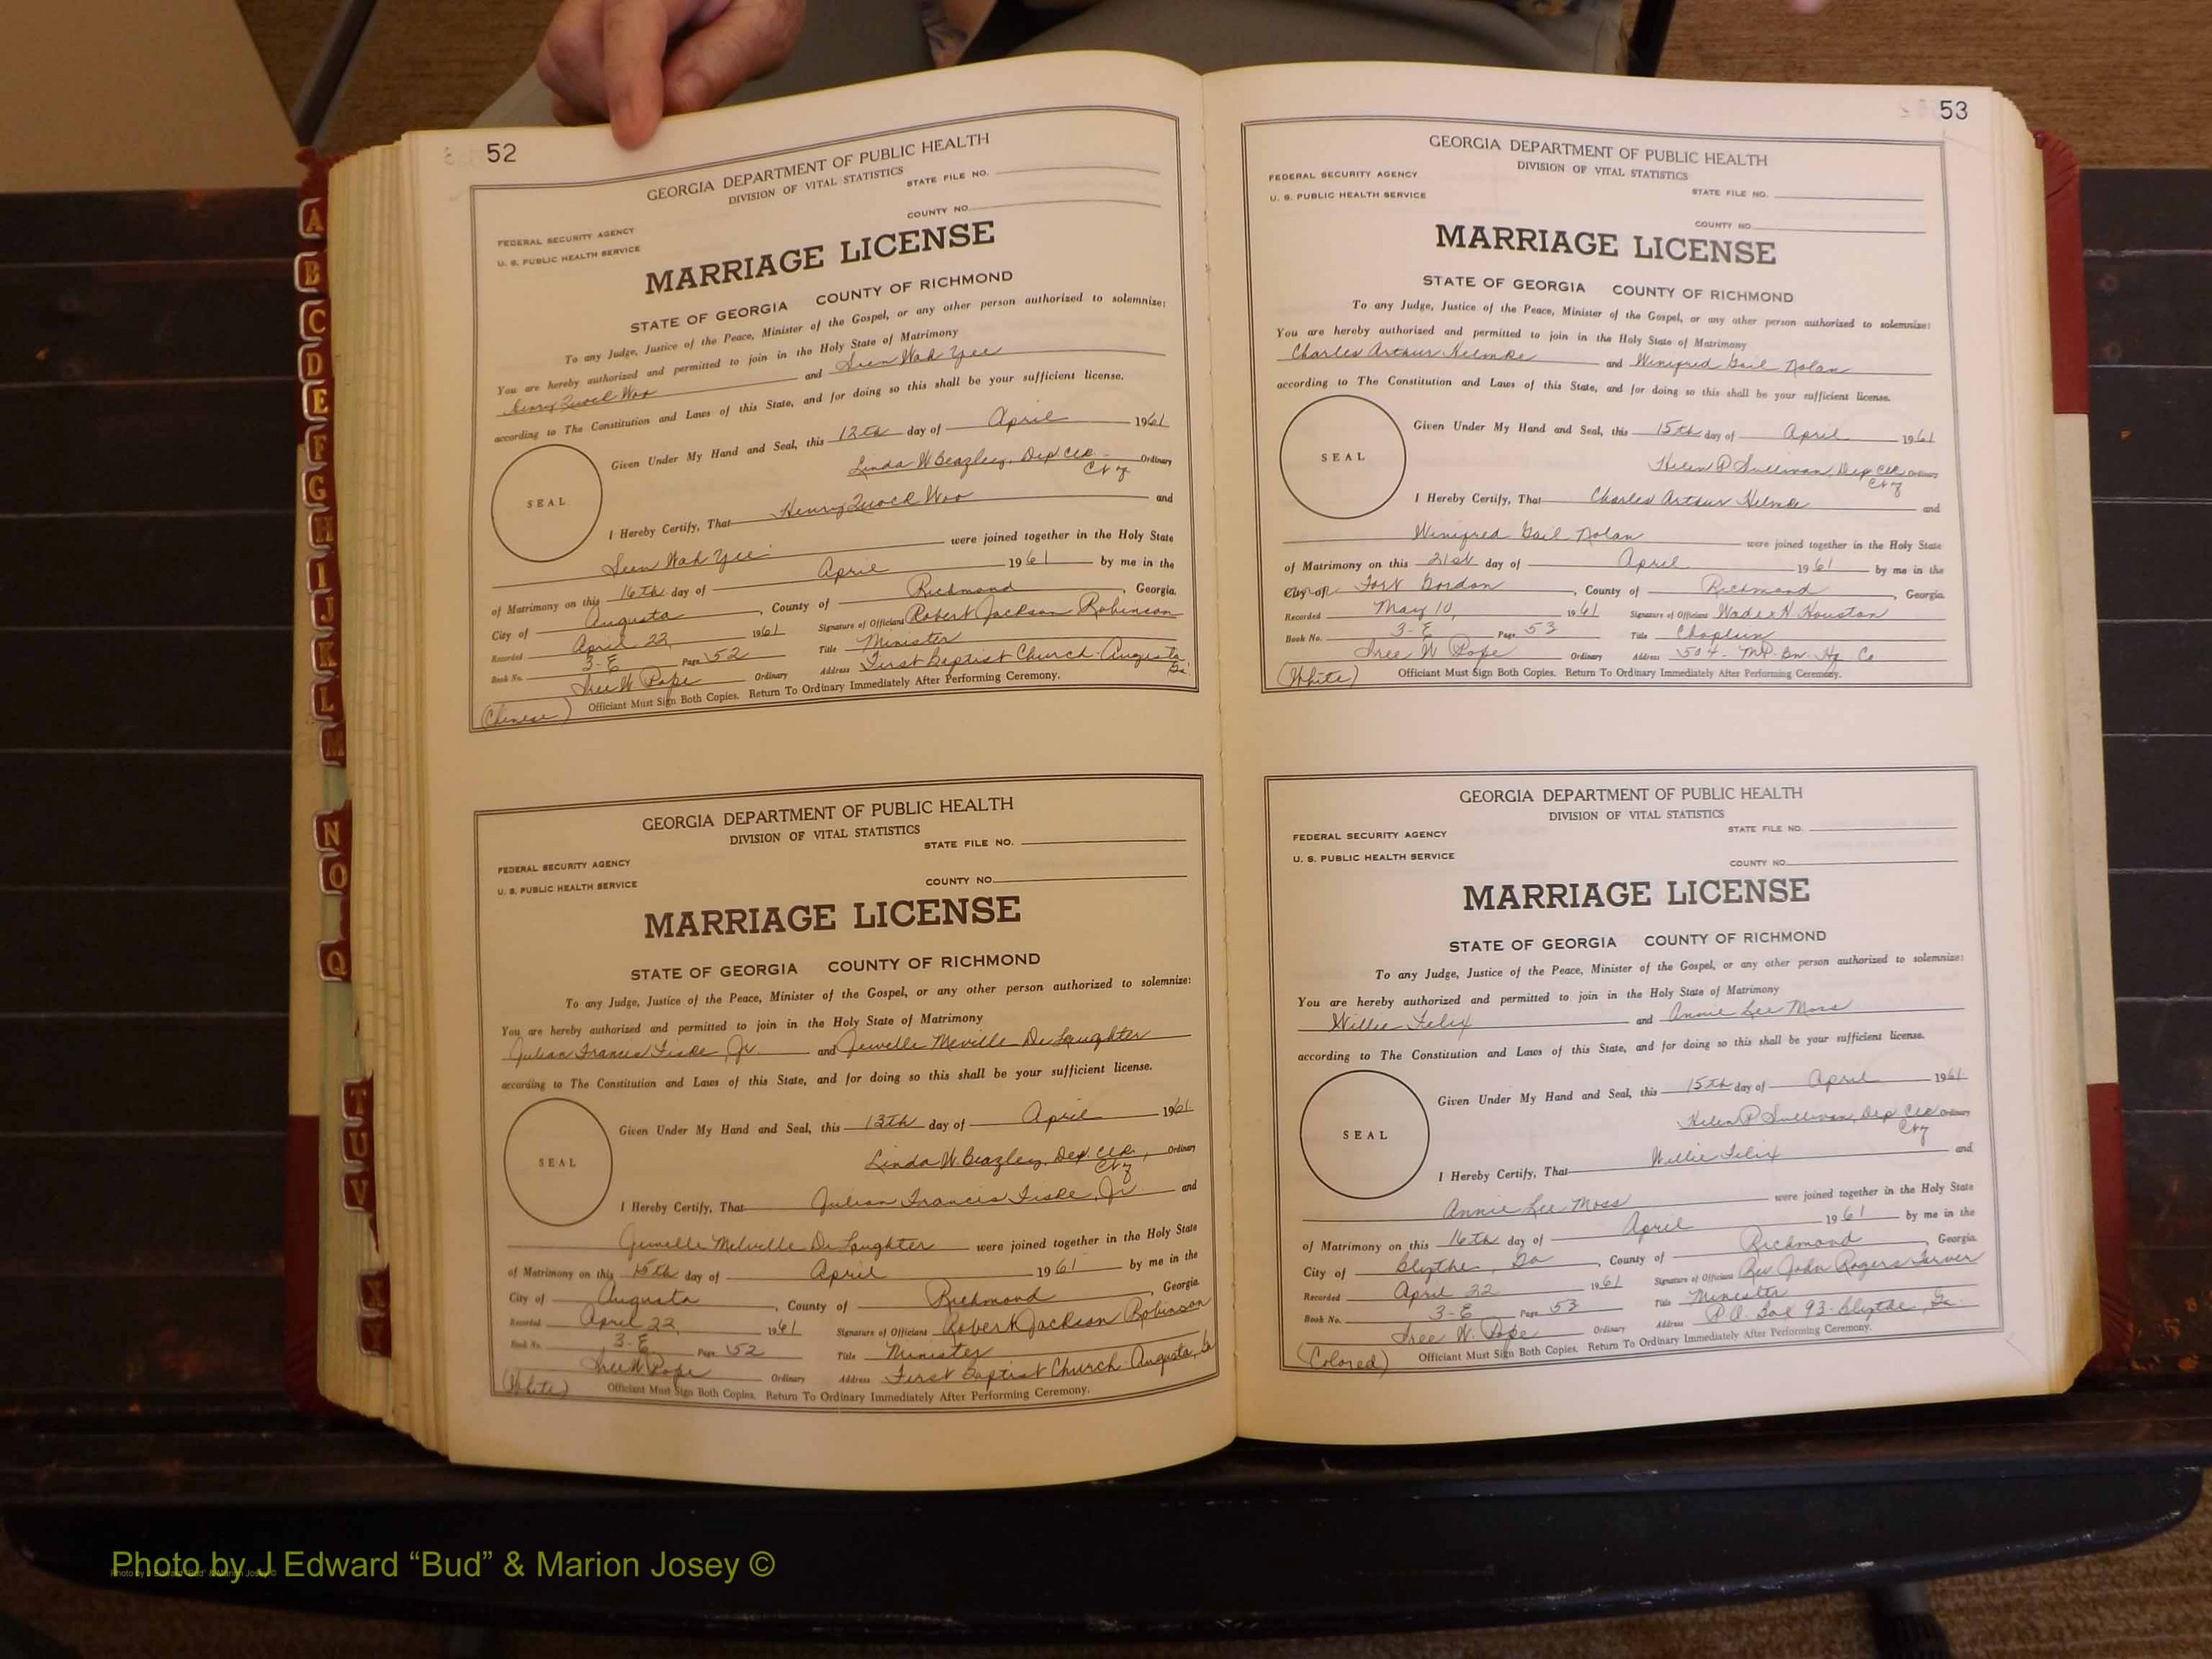 52
GEORGIA DEPARTMENT OF PUBLIC HEALTH
DIVISION OF VITAL STATISTICS
STATE FILE NO.
FEDERAL SECURITY AGENCY
U. S. PUBLIC HEALTH SERVICE
COUNTY NO.
MARRIAGE LICENSE
STATE OF GEORGIA COUNTY OF RICHMOND
To any Judge, Justice of the Peace, Minister of the Gospel, or any other person authorized to solemnize:
You are hereby authorized and permitted to join in the Holy State of Matrimony
Henry Quock Woo and Suen Wah Yee
according to The Constitution and Laws of this State, and for doing so this shall be your sufficient license.
Given Under My Hand and Seal, this 12th day of April 1961
Linda W Beazley, Dep Clk Ordinary
SEAL
I Hereby Certify, That Henry Quock Woo and
Suen Wah Yee were joined together in the Holy State
of Matrimony on this 16th day of April 1961 by me in the
City of Augusta, County of Richmond, Georgia.
Recorded April 22, 1961 Signature of Officiant Robert Jackson Robinson
Book No. 3-E Page 52 Title Minister
Ordinary Address First Baptist Church-Augusta, Ga.
(Chinese) Officiant Must Sign Both Copies. Return To Ordinary Immediately After Performing Ceremony.
GEORGIA DEPARTMENT OF PUBLIC HEALTH
DIVISION OF VITAL STATISTICS
STATE FILE NO.
FEDERAL SECURITY AGENCY
U. S. PUBLIC HEALTH SERVICE
COUNTY NO.
MARRIAGE LICENSE
STATE OF GEORGIA COUNTY OF RICHMOND
To any Judge, Justice of the Peace, Minister of the Gospel, or any other person authorized to solemnize:
You are hereby authorized and permitted to join in the Holy State of Matrimony
Julian Francis Fiske, Jr. and Jewelle Meville DeLaughter
according to The Constitution and Laws of this State, and for doing so this shall be your sufficient license.
Given Under My Hand and Seal, this 13th day of April 1961
Linda W. Beazley, Dep. Clk., Ordinary
SEAL
I Hereby Certify, That Julian Francis Fiske, Jr. and
Jewelle Melville DeLaughter were joined together in the Holy State
of Matrimony on this 15th day of April 1961 by me in the
City of Augusta, County of Richmond, Georgia.
Recorded April 22, 1961 Signature of Officiant Robert Jackson Robinson
Book No. 3-E Page 52 Title Minister
Ordinary Address First Baptist Church-Augusta, Ga
(White) Officiant Must Sign Both Copies. Return To Ordinary Immediately After Performing Ceremony.
53
GEORGIA DEPARTMENT OF PUBLIC HEALTH
DIVISION OF VITAL STATISTICS
FEDERAL SECURITY AGENCY
U. S. PUBLIC HEALTH SERVICE
STATE FILE NO.
COUNTY NO.
MARRIAGE LICENSE
STATE OF GEORGIA COUNTY OF RICHMOND
To any Judge, Justice of the Peace, Minister of the Gospel, or any other person authorized to solemnize:
You are hereby authorized and permitted to join in the Holy State of Matrimony
Charles Arthur Helmke and Winifred Gail Nolan
according to The Constitution and Laws of this State, and for doing so this shall be your sufficient license.
Given Under My Hand and Seal, this 15th day of April 1961
SEAL
Helen P Sullivan, Dep Clk Ordinary
I Hereby Certify, That Charles Arthur Helmke and
Winifred Gail Nolan were joined together in the Holy State
of Matrimony on this 21st day of April 1961 by me in the
City of Fort Gordon, County of Richmond, Georgia.
Recorded May 10, 1961 Signature of Officiant Wade H Houston
Book No. 3-E Page 53 Title Chaplain
Ordinary Address 504- MP. Bn. Hq. Co.
(White) Officiant Must Sign Both Copies. Return To Ordinary Immediately After Performing Ceremony.
GEORGIA DEPARTMENT OF PUBLIC HEALTH
DIVISION OF VITAL STATISTICS
FEDERAL SECURITY AGENCY
STATE FILE NO.
U. S. PUBLIC HEALTH SERVICE
COUNTY NO.
MARRIAGE LICENSE
STATE OF GEORGIA COUNTY OF RICHMOND
To any Judge, Justice of the Peace, Minister of the Gospel, or any other person authorized to solemnize:
You are hereby authorized and permitted to join in the Holy State of Matrimony
Willie Felix and Annie Lee Moss
according to The Constitution and Laws of this State, and for doing so this shall be your sufficient license.
Given Under My Hand and Seal, this 15th day of April 1961
Helen P Sullivan, Dep Clk Ordinary
SEAL
I Hereby Certify, That Willie Felix and
Annie Lee Moss were joined together in the Holy State
of Matrimony on this 16th day of April 1961 by me in the
City of Blythe, Ga, County of Richmond, Georgia.
Recorded April 22 1961 Signature of Officiant Rev John Rogers
Book No. 3-E Page 53 Title Minister
Ordinary Address P.O. Box 93-Blythe, Ga.
(Colored) Officiant Must Sign Both Copies. Return To Ordinary Immediately After Performing Ceremony.
A
B
C
D
E
F
G
H
I
J
K
L
M
N
O
Q
T
U
V
X
Y
Photo by J Edward “Bud” & Marion Josey ©